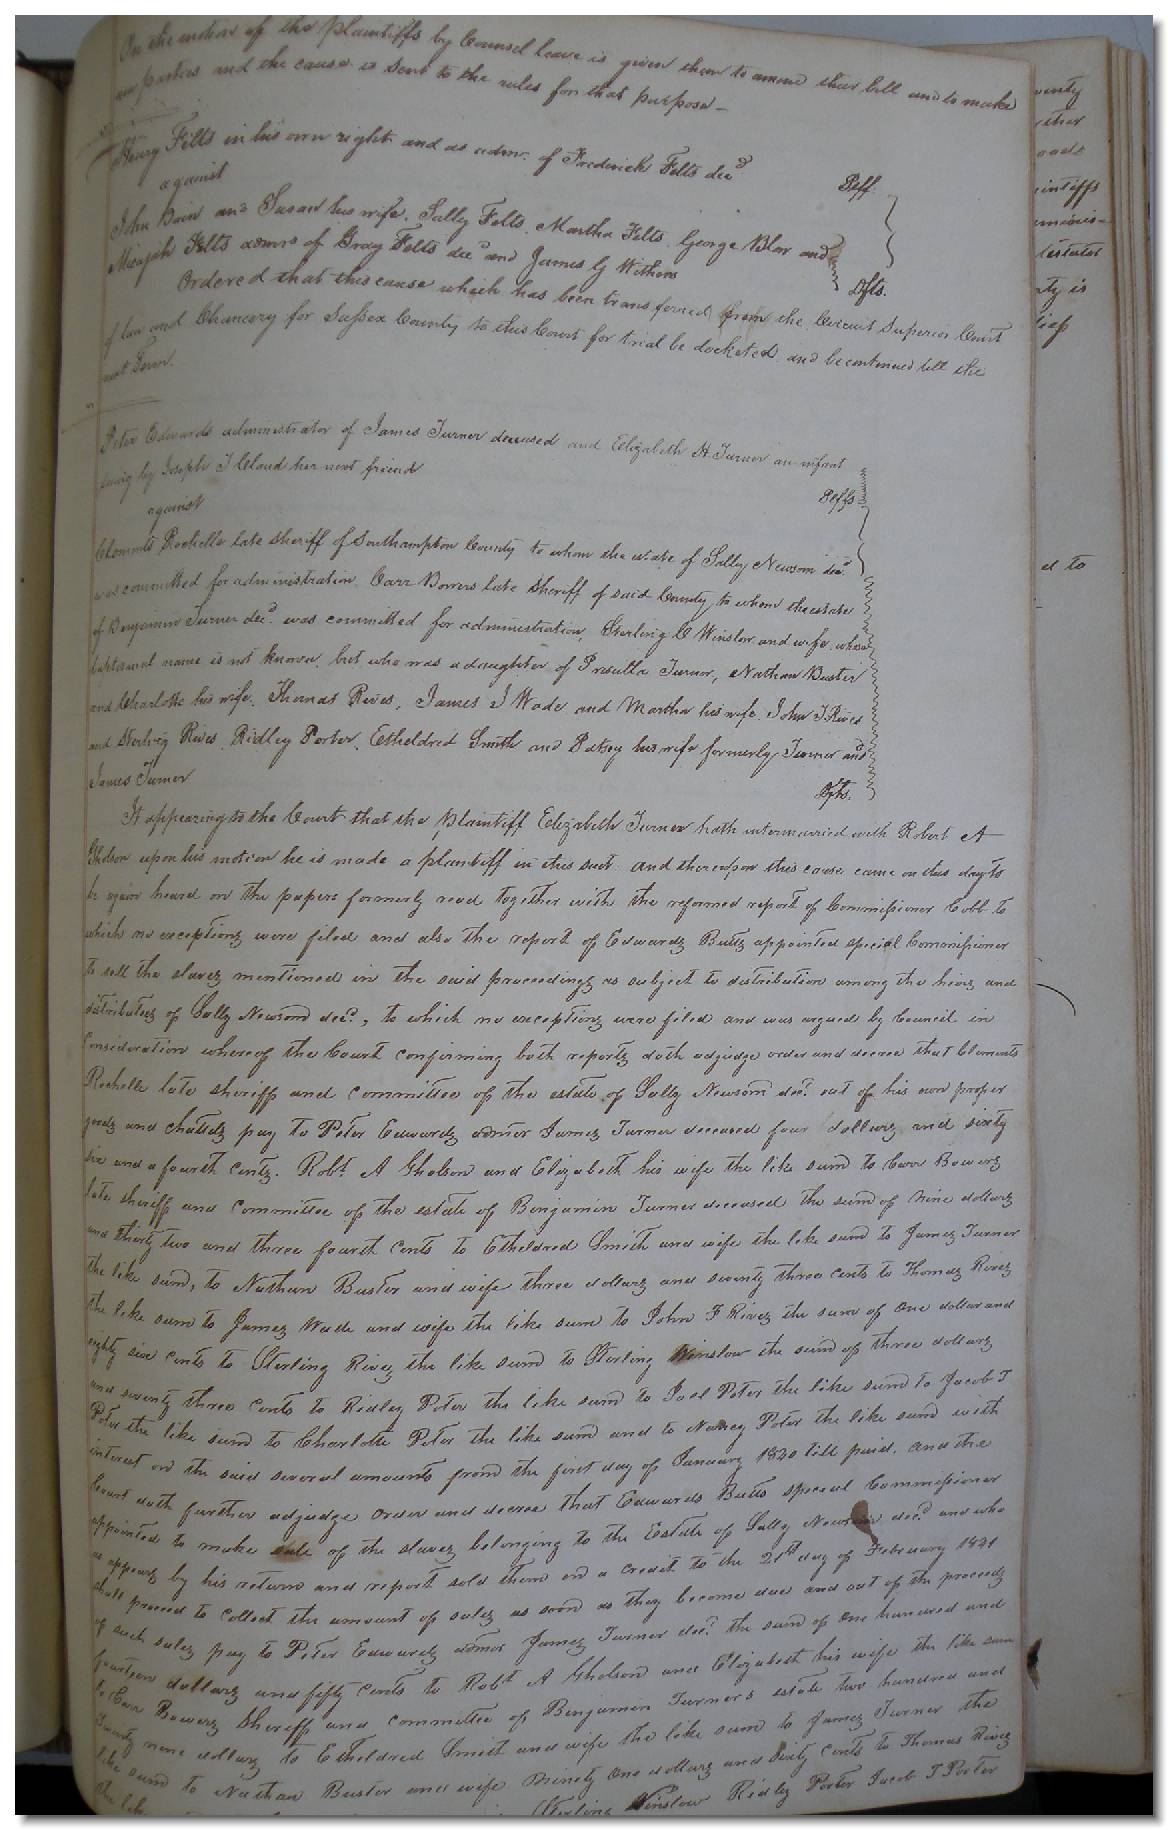 On the motion of the plaintiffs by Counsel leave is given them to amend their bill and to make
parties and the cause is sent to the rules for that purpose -
Henry Felts in his own right and as admr. of Frederick Felts decd
Plff.
against
John Bain and Susan his wife, Sally Felts, Martha Felts, George Blow and
Micajah Felts admrs of Gray Felts decd and James G Withers
Dfts.
Ordered that this cause which has been transferred from the Circuit Superior Court
of law and Chancery for Sussex County to this Court for trial be docketed and be continued till the
next Term.
Peter Edwards administrator of James Turner deceased and Elizabeth H Turner an infant
suing by Joseph T Claud her next friend
Plffs
against
Clements Rochelle late sheriff of Southampton County to whom the estate of Sally Newsom decd.
was committed for administration, Carr Bowers late sheriff of said County to whom the estate
of Benjamin Turner decd. was committed for administration, Sterling C Winslow and wife whose
baptismal name is not known, but who was a daughter of Priscilla Turner, Nathan Buster
and Charlotte his wife, Thomas Rives, James J Wade and Martha his wife, John F Rives
and Sterling Rives, Ridley Porter, Etheldred Smith and Patsey his wife formerly Turner and
James Turner
Dfts.
It appearing to the Court that the Plaintiff Elizabeth Turner hath intermarried with Robert A
Gholson upon his motion he is made a plaintiff in this suit and thereupon this cause came on this day to
be again heard on the papers formerly read together with the reformed report of Commissioner Cobb to
which no exceptions were filed and also the report of Edwards Butts appointed special Commissioner
to sell the slaves mentioned in the said proceedings as subject to distribution among the heirs and
distributees of Sally Newsom decd., to which no exceptions were filed and was argued by Council in
Consideration whereof the Court confirming both reports doth adjudge order and decree that Clements
Rochelle late sheriff and committee of the estate of Sally Newsom decd. out of his own proper
goods and chattels pay to Peter Edwards admor James Turner deceased four dollars and sixty
six and a fourth cents. Robt. A Gholson and Elizabeth his wife the like sum to Carr Bowers
late sheriff and committee of the estate of Benjamin Turner deceased the sum of nine dollars
and thirty two and three fourth cents to Etheldred Smith and wife the like sum to James Turner
the like sum, to Nathan Buster and wife three dollars and seventy three cents to Thomas Rives
the like sum to James Wade and wife the like sum to John F Rives the sum of one dollar and
eighty six cents to Sterling Rives the like sum to Sterling Winslow the sum of three dollars
and seventy three cents to Ridley Poter the like sum to Joel Poter the like sum to Jacob T
Poter the like sum to Charlotte Poter the like sum and to Nancy Poter the like sum with
interest on the said several amounts from the first day of January 1820 till paid. and the
Court doth further adjudge order and decree that Edwards Butts special Commissioner
appointed to make sale of the slaves belonging to the Estate of Sally Newsom decd and who
as appears by his return and report sold them on a credit to the 21st day of February 1821
shall proceed to collect the amount of sales as soon as they become due and out of the proceeds
of such sales pay to Peter Edwards admor James Turner decd. the sum of one hundred and
fourteen dollars and fifty cents to Robt A Gholson and Elizabeth his wife the like sum
to Carr Bowers Sheriff and committee of Benjamin Turners estate two hundred and
twenty nine dollars to Etheldred Smith and wife the like sum to James Turner the
like sum to Nathan Buster and wife ninety one dollars and sixty cents to Thomas Rives
the like Sterling Winslow Ridley Porter Jacob T Porter